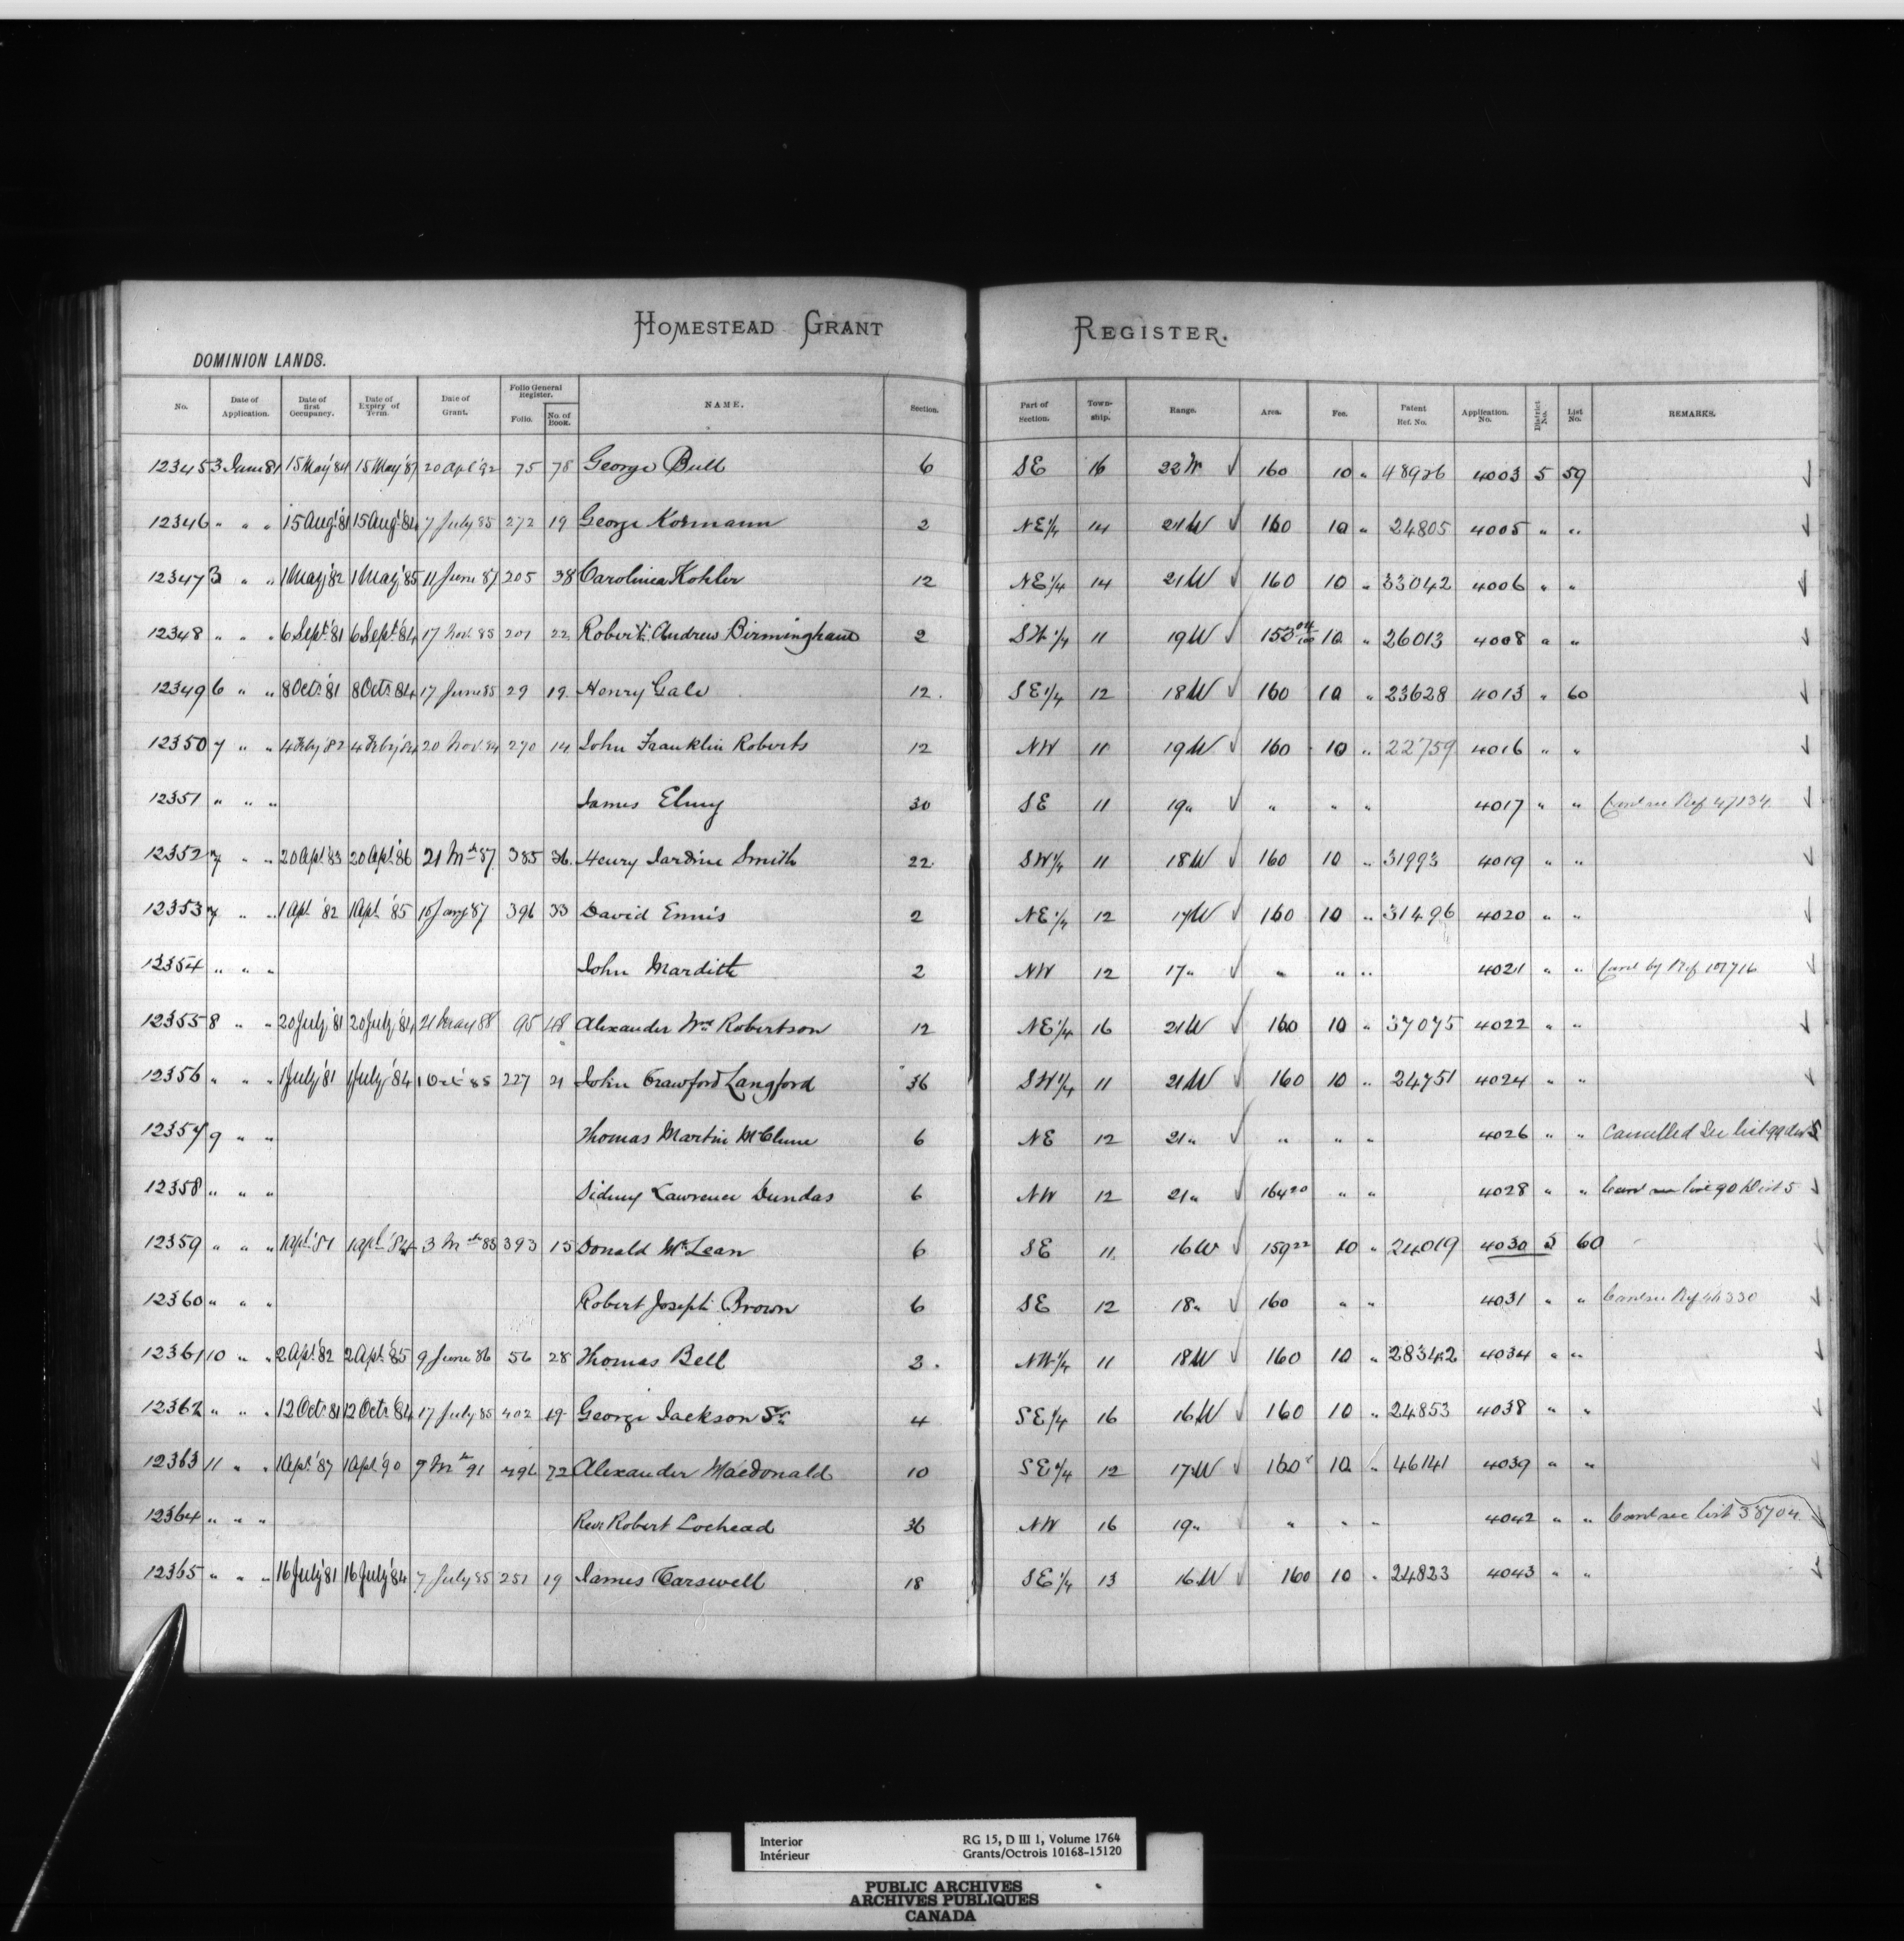 HOMESTEAD GRANT REGISTER.
DOMINION LANDS.
No. Date of Application. Date of first Occupancy. Date of Expiry of Term. Date of Grant. Folio General Register. Folio. No. of Book. NAME. Section. Part of Section. Township. Range. Area. Fee. Patent Ref. No. Application No. District No. List No. REMARKS.
12345 3 June 81 15 May '84 15 May '87 20 Apl '92 75 78 George Bull 6 SE 16 22 W ✓ 160 10 " 48926 4003 5 59
12346 " " " 15 Augt '81 15 Augt '84 7 July 85 272 19 George Kormann 2 NE 1/4 14 21 W ✓ 160 10 " 24805 4005 " "
12347 3 " " 1 May '82 1 May '85 11 June 87 205 38 Carolinea Kohler 12 NE 1/4 14 21 W ✓ 160 10 " 33042 4006 " "
12348 " " " 6 Sept '81 6 Sept '84 17 Nov. 85 201 22 Robert Andrew Birmingham 2 SW 1/4 11 19 W ✓ 10 " 26013 4008 " "
12349 6 " " 8 Octr '81 8 Octr 84 17 June 85 29 19 Henry Gale 12 SE 1/4 12 18 W ✓ 160 10 " 23628 4013 " 60
12350 7 " " 4 Feby '82 4 Feby '84 20 Nov. 84 270 14 John Franklin Roberts 12 NW 11 19 W ✓ 160 10 " 22759 4016 " "
12351 " " " James Elmy 30 SE 11 19 " ✓ " " " 4017 " " Canc see Ref 47134
12352 7 " " 20 Apl '83 20 Apl '86 21 Mch 87 385 36 Henry Jardine Smith 22 SW 1/4 11 18 W ✓ 160 10 " 31993 4019 " "
12353 7 " " 1 Apl '82 1 Apl '85 15 Jany 87 396 33 David Ennis 2 NE 1/4 12 17 W ✓ 160 10 " 31496 4020 " "
12354 " " " John Mardith 2 NW 12 17 " ✓ " " " 4021 " " Canc by Ref 107716
12355 8 " " 20 July '81 20 July '84 21 May 88 95 48 Alexander Wm Robertson 12 NE 1/4 16 21 W ✓ 160 10 " 37075 4022 " "
12356 " " " 1 July '81 1 July '84 1 Oct 85 227 21 John Crawford Langford 36 SW 1/4 11 21 W ✓ 160 10 " 24751 4024 " "
12357 9 " " Thomas Martin McClune 6 NE 12 21 " ✓ " " " 4026 " " Cancelled See list 99 Dist 5
12358 " " " Sidney Lawrence Dundas 6 NW 12 21 " ✓ 164 20 " " 4028 " " Canc see list 90 Dist 5
12359 " " " 1 Apl '81 1 Apl '84 3 Mch 85 393 15 Donald McLean 6 SE 11 16 W ✓ 159 22 10 " 24019 4030 5 60
12360 " " " Robert Joseph Brown 6 SE 12 18 " ✓ 160 " " 4031 " " Canc see Ref 46330
12361 10 " " 2 Apl '82 2 Apl '85 9 June 86 56 28 Thomas Bell 2 NW 1/4 11 18 W ✓ 160 10 " 28342 4034 " "
12362 " " " 12 Octr 81 12 Octr '84 17 July 85 402 19 George Jackson Sr. 4 SE 1/4 16 16 W ✓ 160 10 " 24853 4038 " "
12363 11 " " 1 Apl '87 1 Apl '90 9 Mch 91 72 Alexander Macdonald 10 SE 1/4 12 17 W ✓ 160 10 " 46141 4039 " "
12364 " " " Rev. Robert Lochead 36 NW 16 19 " " " " 4042 " " Canc see list 38704
12365 " " " 16 July '81 16 July '84 7 July 85 251 19 James Carswell 18 SE 1/4 13 16 W ✓ 160 10 " 24823 4043 " "
Interior RG 15, D III 1, Volume 1764
Intérieur Grants/Octrois 10168-15120
PUBLIC ARCHIVES
ARCHIVES PUBLIQUES
CANADA